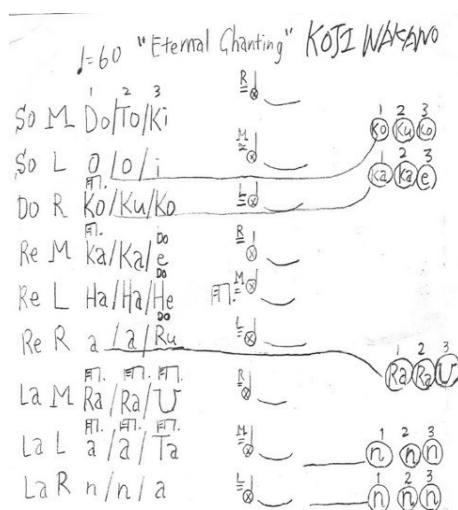 ♩=60 "Eternal Chanting" KOJI NAKANO
1 2 3
So M Do/To/Ki R 1 2 3
So L o/o/i M Ko Ku Ko
1 2 3
Do R Ko/Ku/Ko L Ka Ka e
Do
Re M Ka/Ka/e R
Do
Re L Ha/Ha/He M
Do
Re R a/a/Ru L 1 2 3
La M Ra/Ra/U R Ra Ra U
La L a/a/Ta M 1 2 3
n n n
La R n/n/a L 1 2 3
n n n